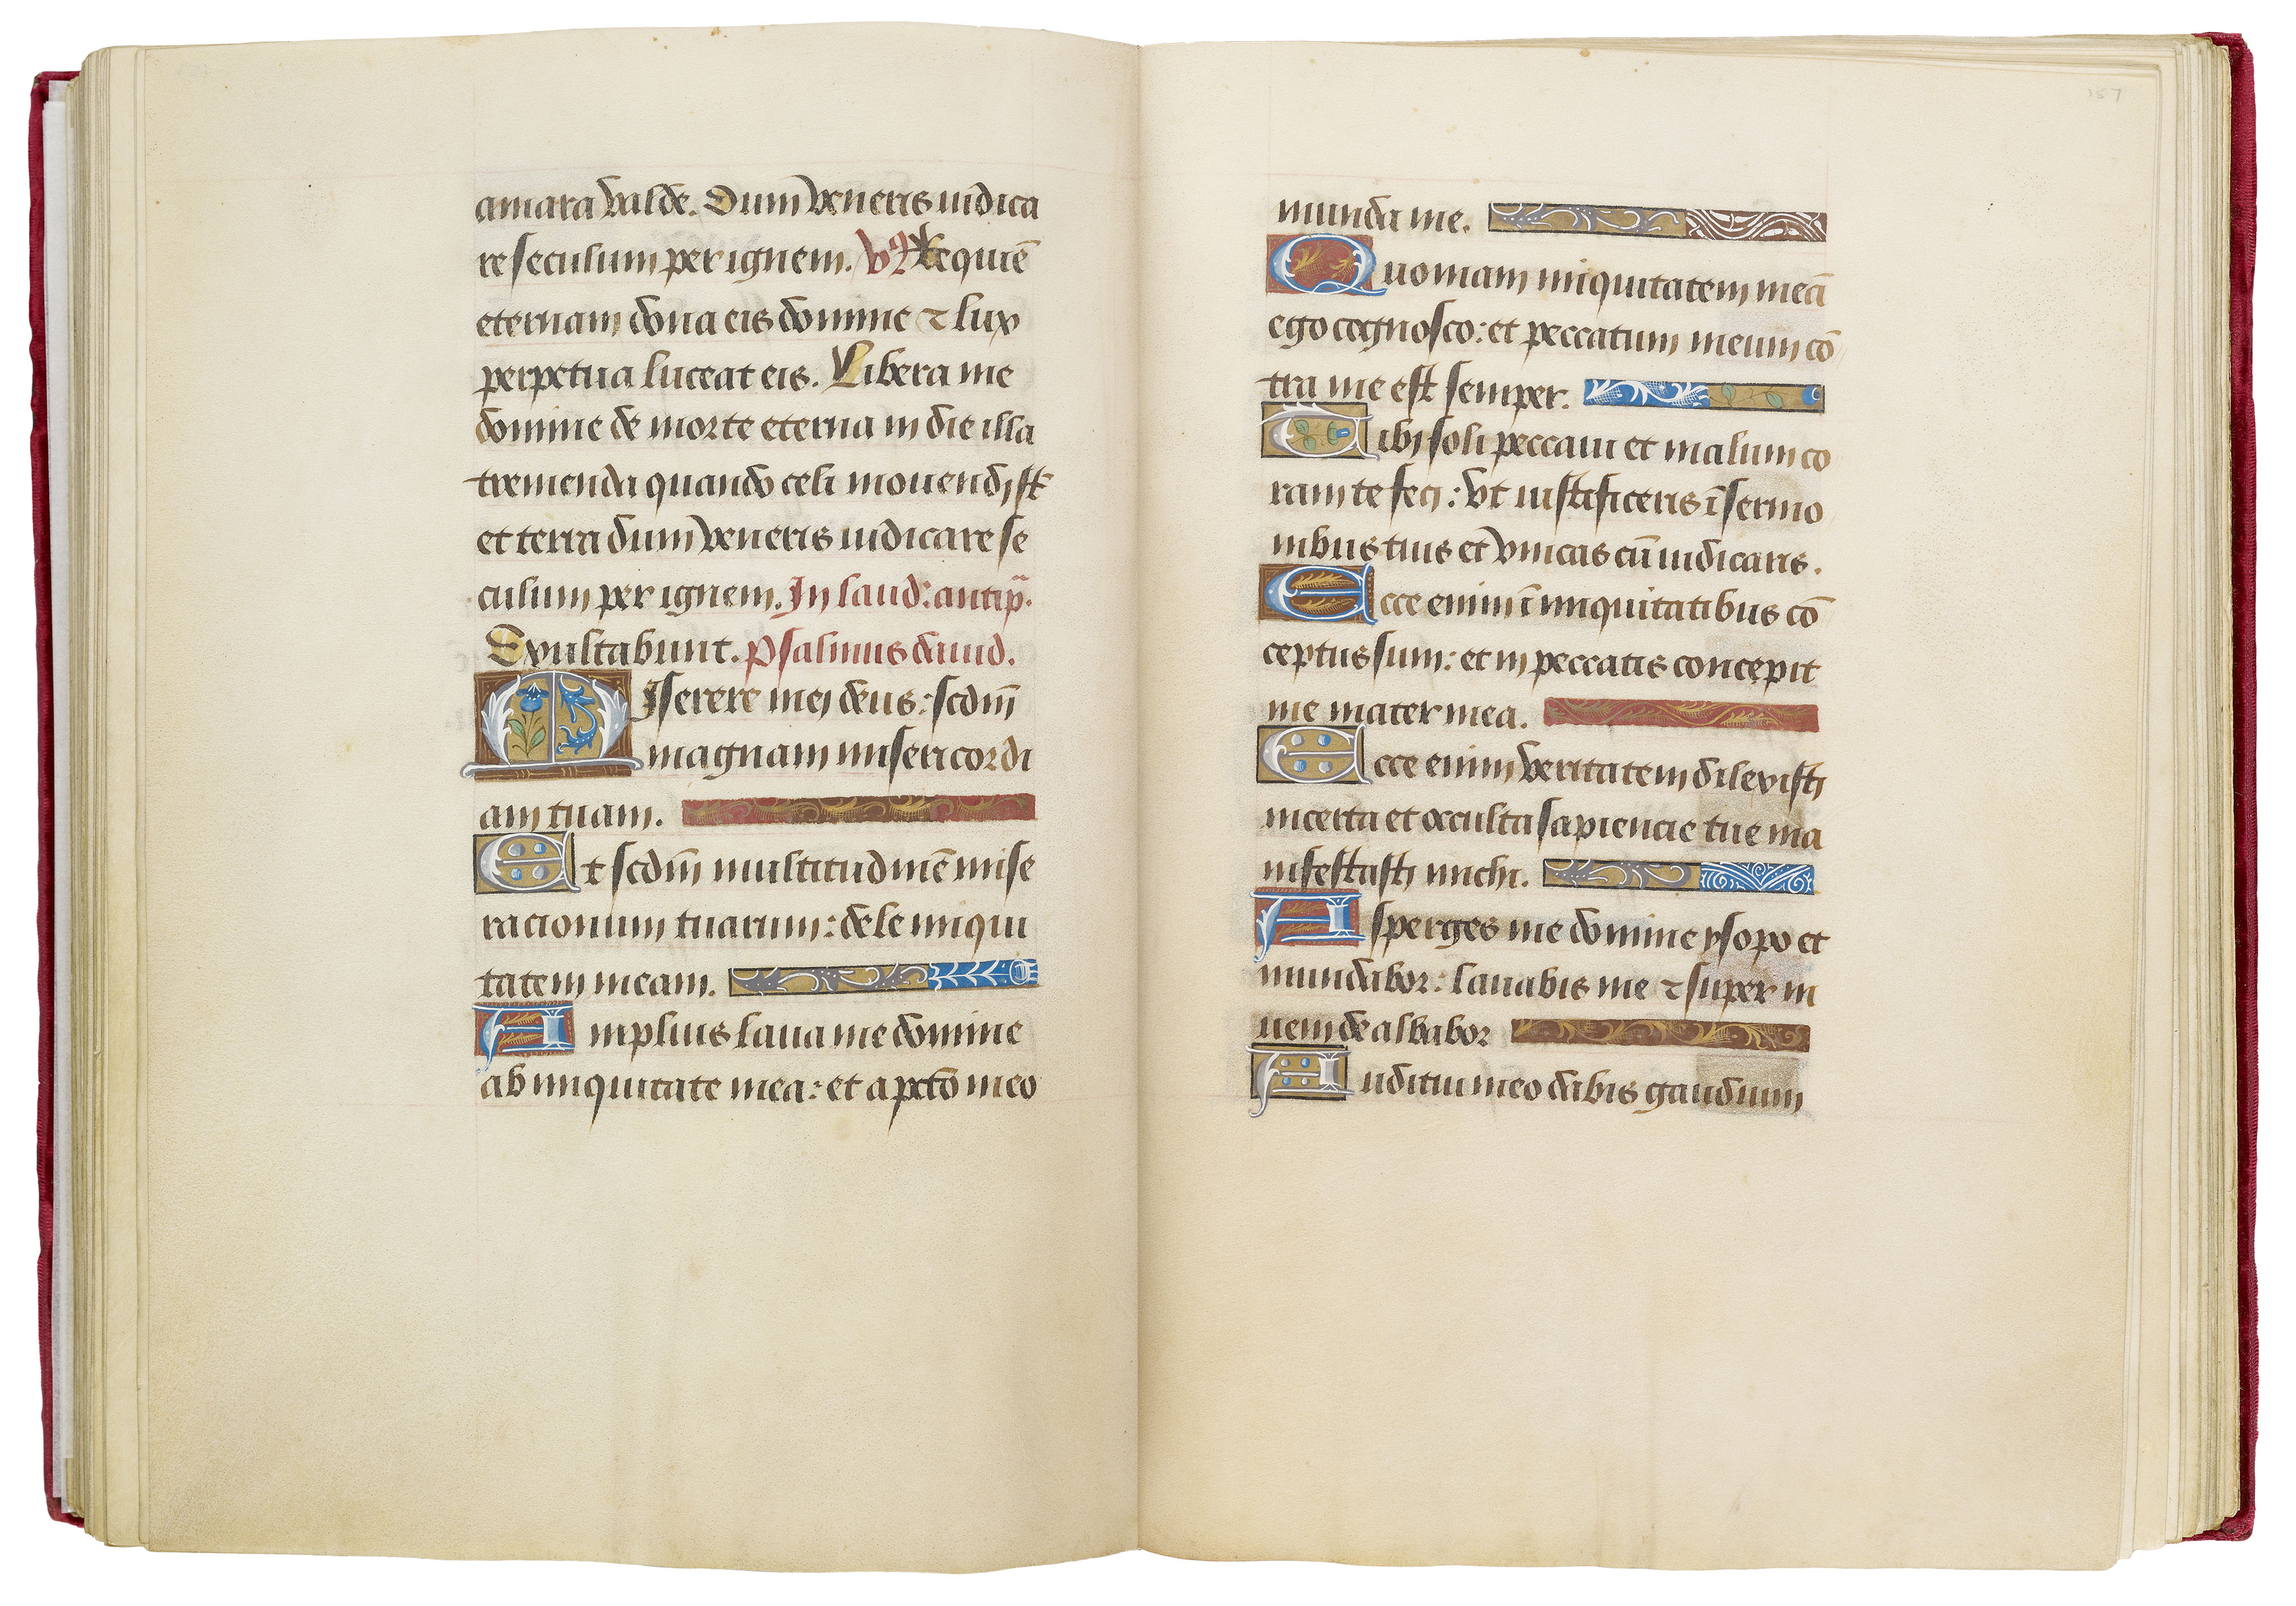 amara valde. Dum veneris iudica
re seculum per ignem. v9 Requiē
eternam dona eis domine ⁊ lux
perpetua luceat eis. Libera me
domine de morte eterna in die illa
tremenda quando celi mouendi st̄
et terra dum veneris iudicare se
culum per ignem. In laud: antip̄.
Exultabunt. Psalmus dauid.
MIserere mei deus: scdm̄
magnam misericordi
am tuam.
Et scdm̄ multitudinē mise
racionum tuarum: dele iniqui
tatem meam.
Amplius laua me domine
ab iniquitate mea: et a pctō meo
157
munda me.
Quoniam iniquitatem meā
ego cognosco: et peccatum meum cō
tra me est semper.
Tibi soli peccaui et malum co
ram te feci: vt iustificeris ī sermo
nibus tuis et vincas cū iudicaris.
Ecce enim ī iniquitatibus cō
ceptus sum: et in peccatis concepit
me mater mea.
Ecce enim veritatem dilexisti
incerta et occulta sapiencie tue ma
nifestasti michi.
Asperges me domine ysopo et
mundabor: lauabis me ⁊ super ni
uem dealbabor
Auditui meo dabis gaudium